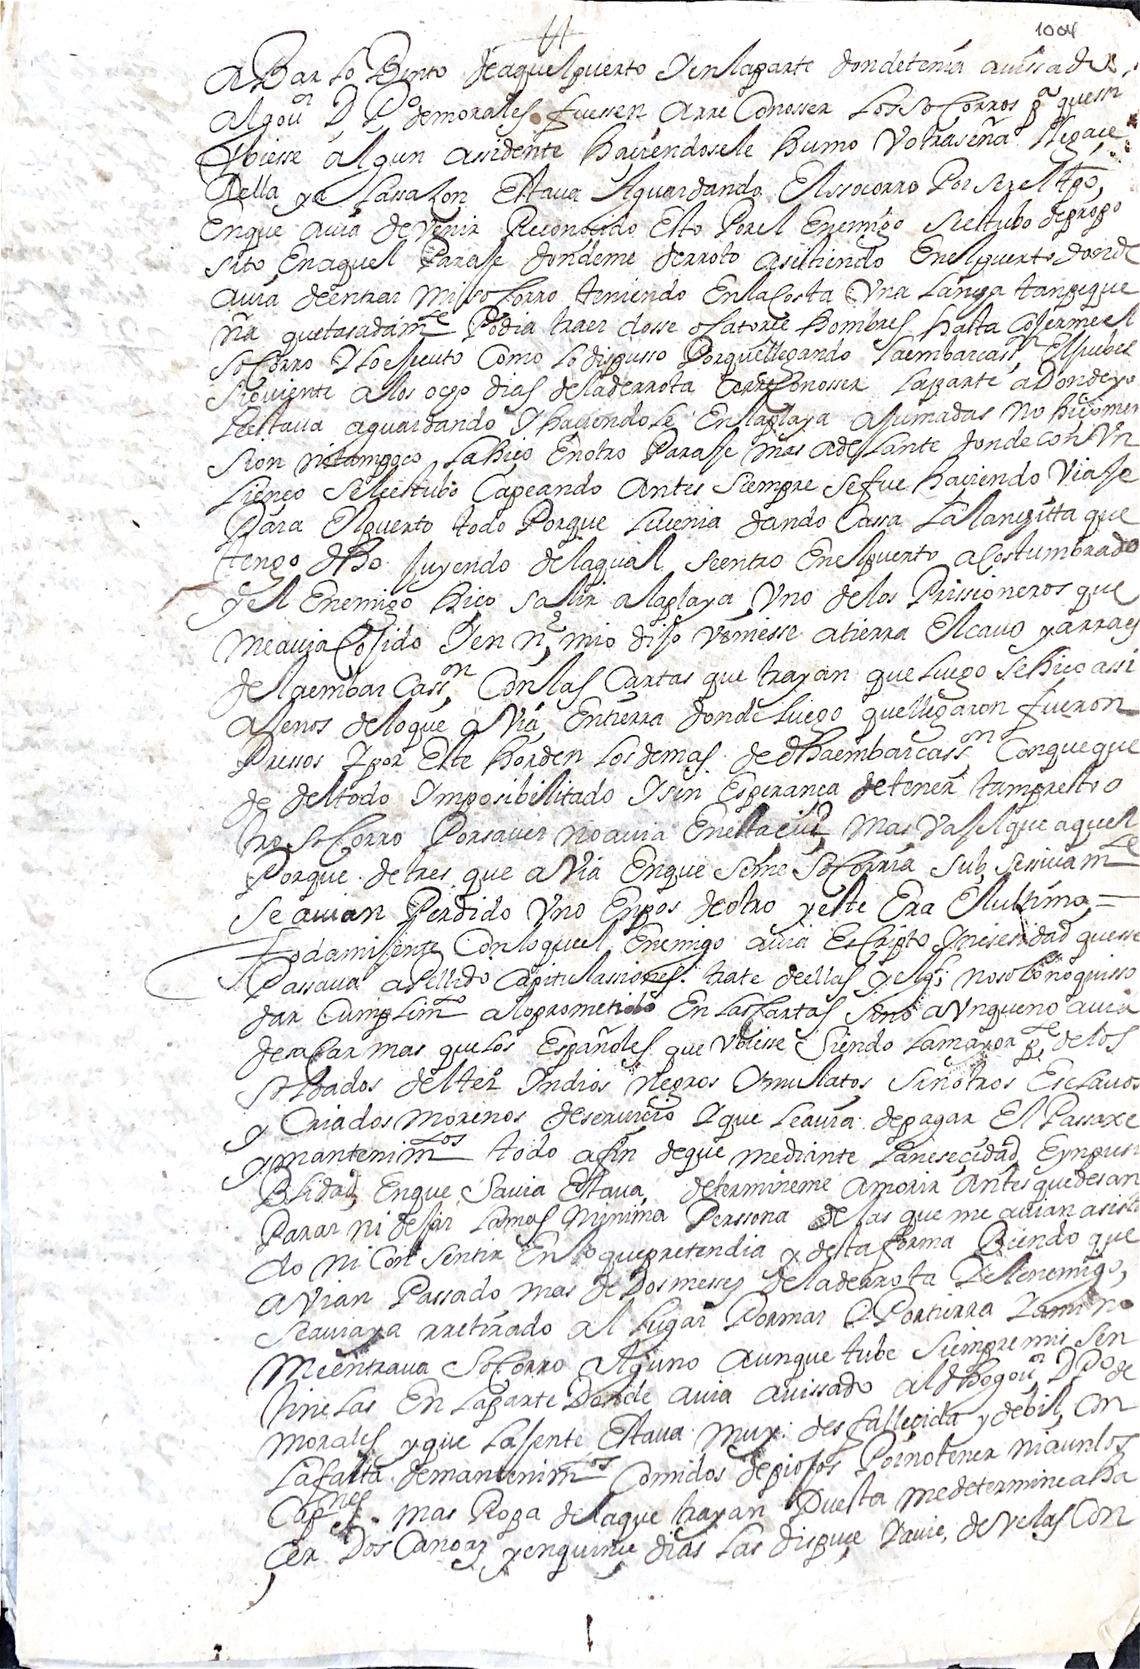 1004
a Barlo Bento de aquel puerto Y en la parte donde tenia avissado
al gour D Po de morales fuessen a rre Conosser los soCorros pa que si
Vbiesse algun assidente haciendosele humo V otra seña llegase
a ella ya la sason Estava Aguardando El ssocorro Por ser el tpo
En que avia de venir Reconocido Esto Por el Enemigo se estubo de propo
sito En aquel Paraje donde me derroto asistiendo En el puerto donde
avia de entrar mi soCorro teniendo En la Costa Vna lancha tan peque
ña que tasadamte Podia traer dosse o Catorce hombres hasta Cojerme el
soCorro Y lo essecuto Como lo dispusso Porque llegando la embarcassn El jubes
siguiente a los ocho dias de la derrota a rreConosser la parte a Donde yo
Estava aguardando Y haciendole En la playa ajumadas no hiço men
sion ni tampoco la hiço En otro Paraje mas adelante donde con Vn
Lienço se le estubo Capeando antes siempre se fue haciendo Viaje
Para El puerto todo Porque le venia dando Cassa la lanchitta que
tengo dho juyendo de la qual se entro En el puerto aCostumbrado
y el Enemigo hiço salir a la playa Vno de los Prissioneros que
me avia Cojido Y en ne mio dijo Veniesse a tierra El cavo y arraes
de la embarCassn Con las Cartas que trayan que luego se hiço assi
ajenos de lo que aVia En tierra donde luego que llegaron fueron
Pressos Y por Este horden los demas de dha embarcassn Con que que
de del todo Ymposibilitado Y sin Esperança de tener tam presto o
tro soCorro Por saver no avia En esta ciud mas Vajel que aquel
Porque de tres que aVia En que se me soCorria subsessivamte
se avian Perdido Vno En pos de otro y este Era El ultimo =
toda mi jente Con lo que el Enemigo avia EsCripto Y nesesidad que se
Passava a Pedido Capitulassiones trate de ellas y el no solo no quisso
dar Cumplimto a lo prometido En las Cartas sino aVnque no avia
de saCar mas que los Españoles que Vbiesse siendo la mayor pte de los
soldados del terº Yndios negros Y mulatos sin otros Esclavos
y Criados morenos de servicio Y que le avia de pagar El Passaxe
y mantenimtos todo a fin de que mediante la nesecidad E ynpusi
Blidad En que savia Estava determineme a morir antes que desan
Parar ni dejar la mas Minima Perssona de las que me avian asisti
do ni Consentir En lo que pretendia y desta forma Biendo que
aVian Passado mas de Dos messes de la derrota Y el enemigo
se avia ya rretirado al lugar Por mar Y Por tierra Y a mi no
me entrava soCorro alguno aunque tube siempre mis sen
tinelas En la parte Donde avia avissado al dho gour D Po de
morales y que la jente Estava muy desfallecida y debil Con
la falta de mantenimtos Comidos de piojos Por no tener ni aun los
Capnes mas Ropa de la que trayan Puesta me determine a ha
Cer Dos Canoas y en quince dias las dispuse Y avie de Velas Con